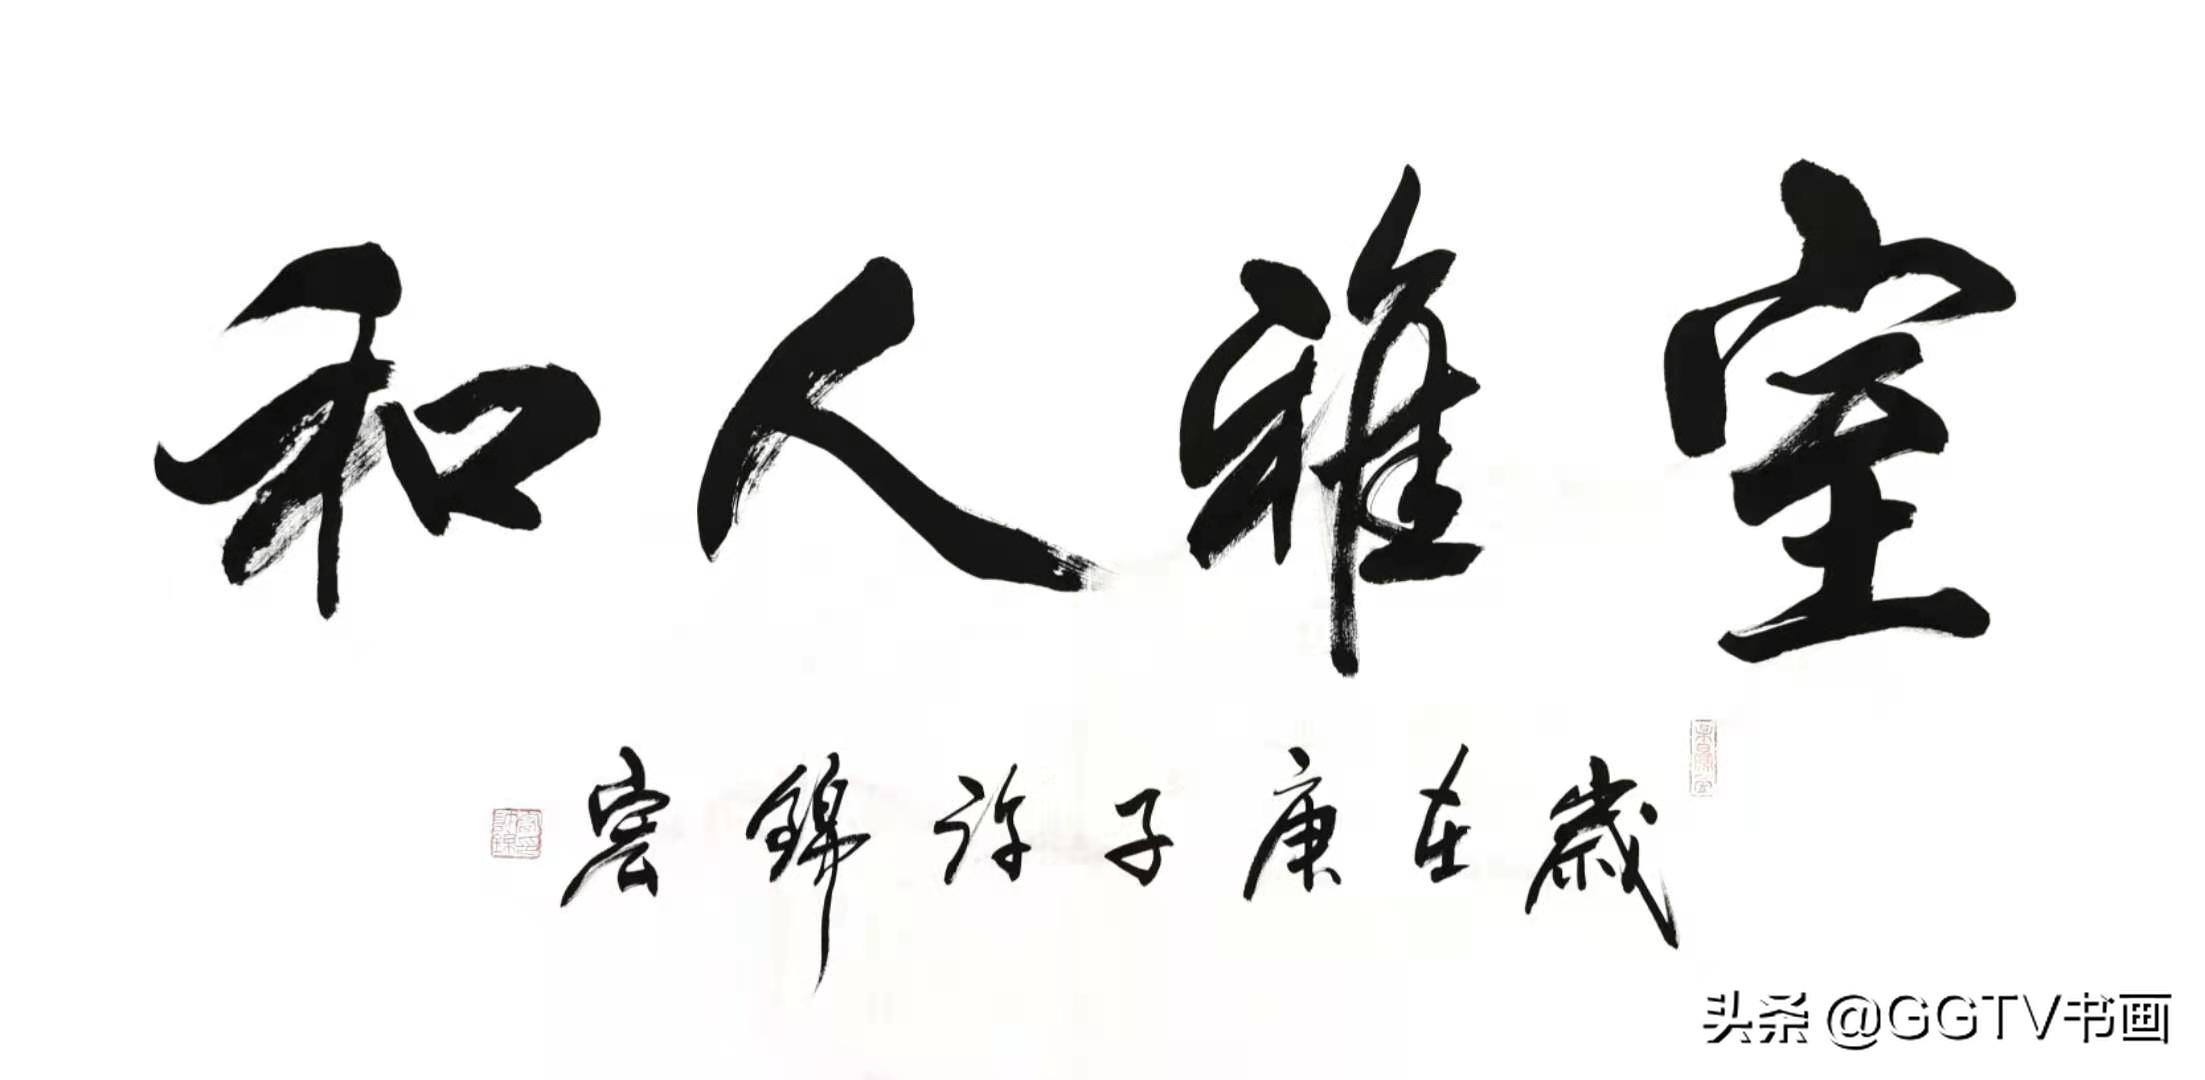 室雅人和
歲在庚子许錦
头条 @GGTV书画